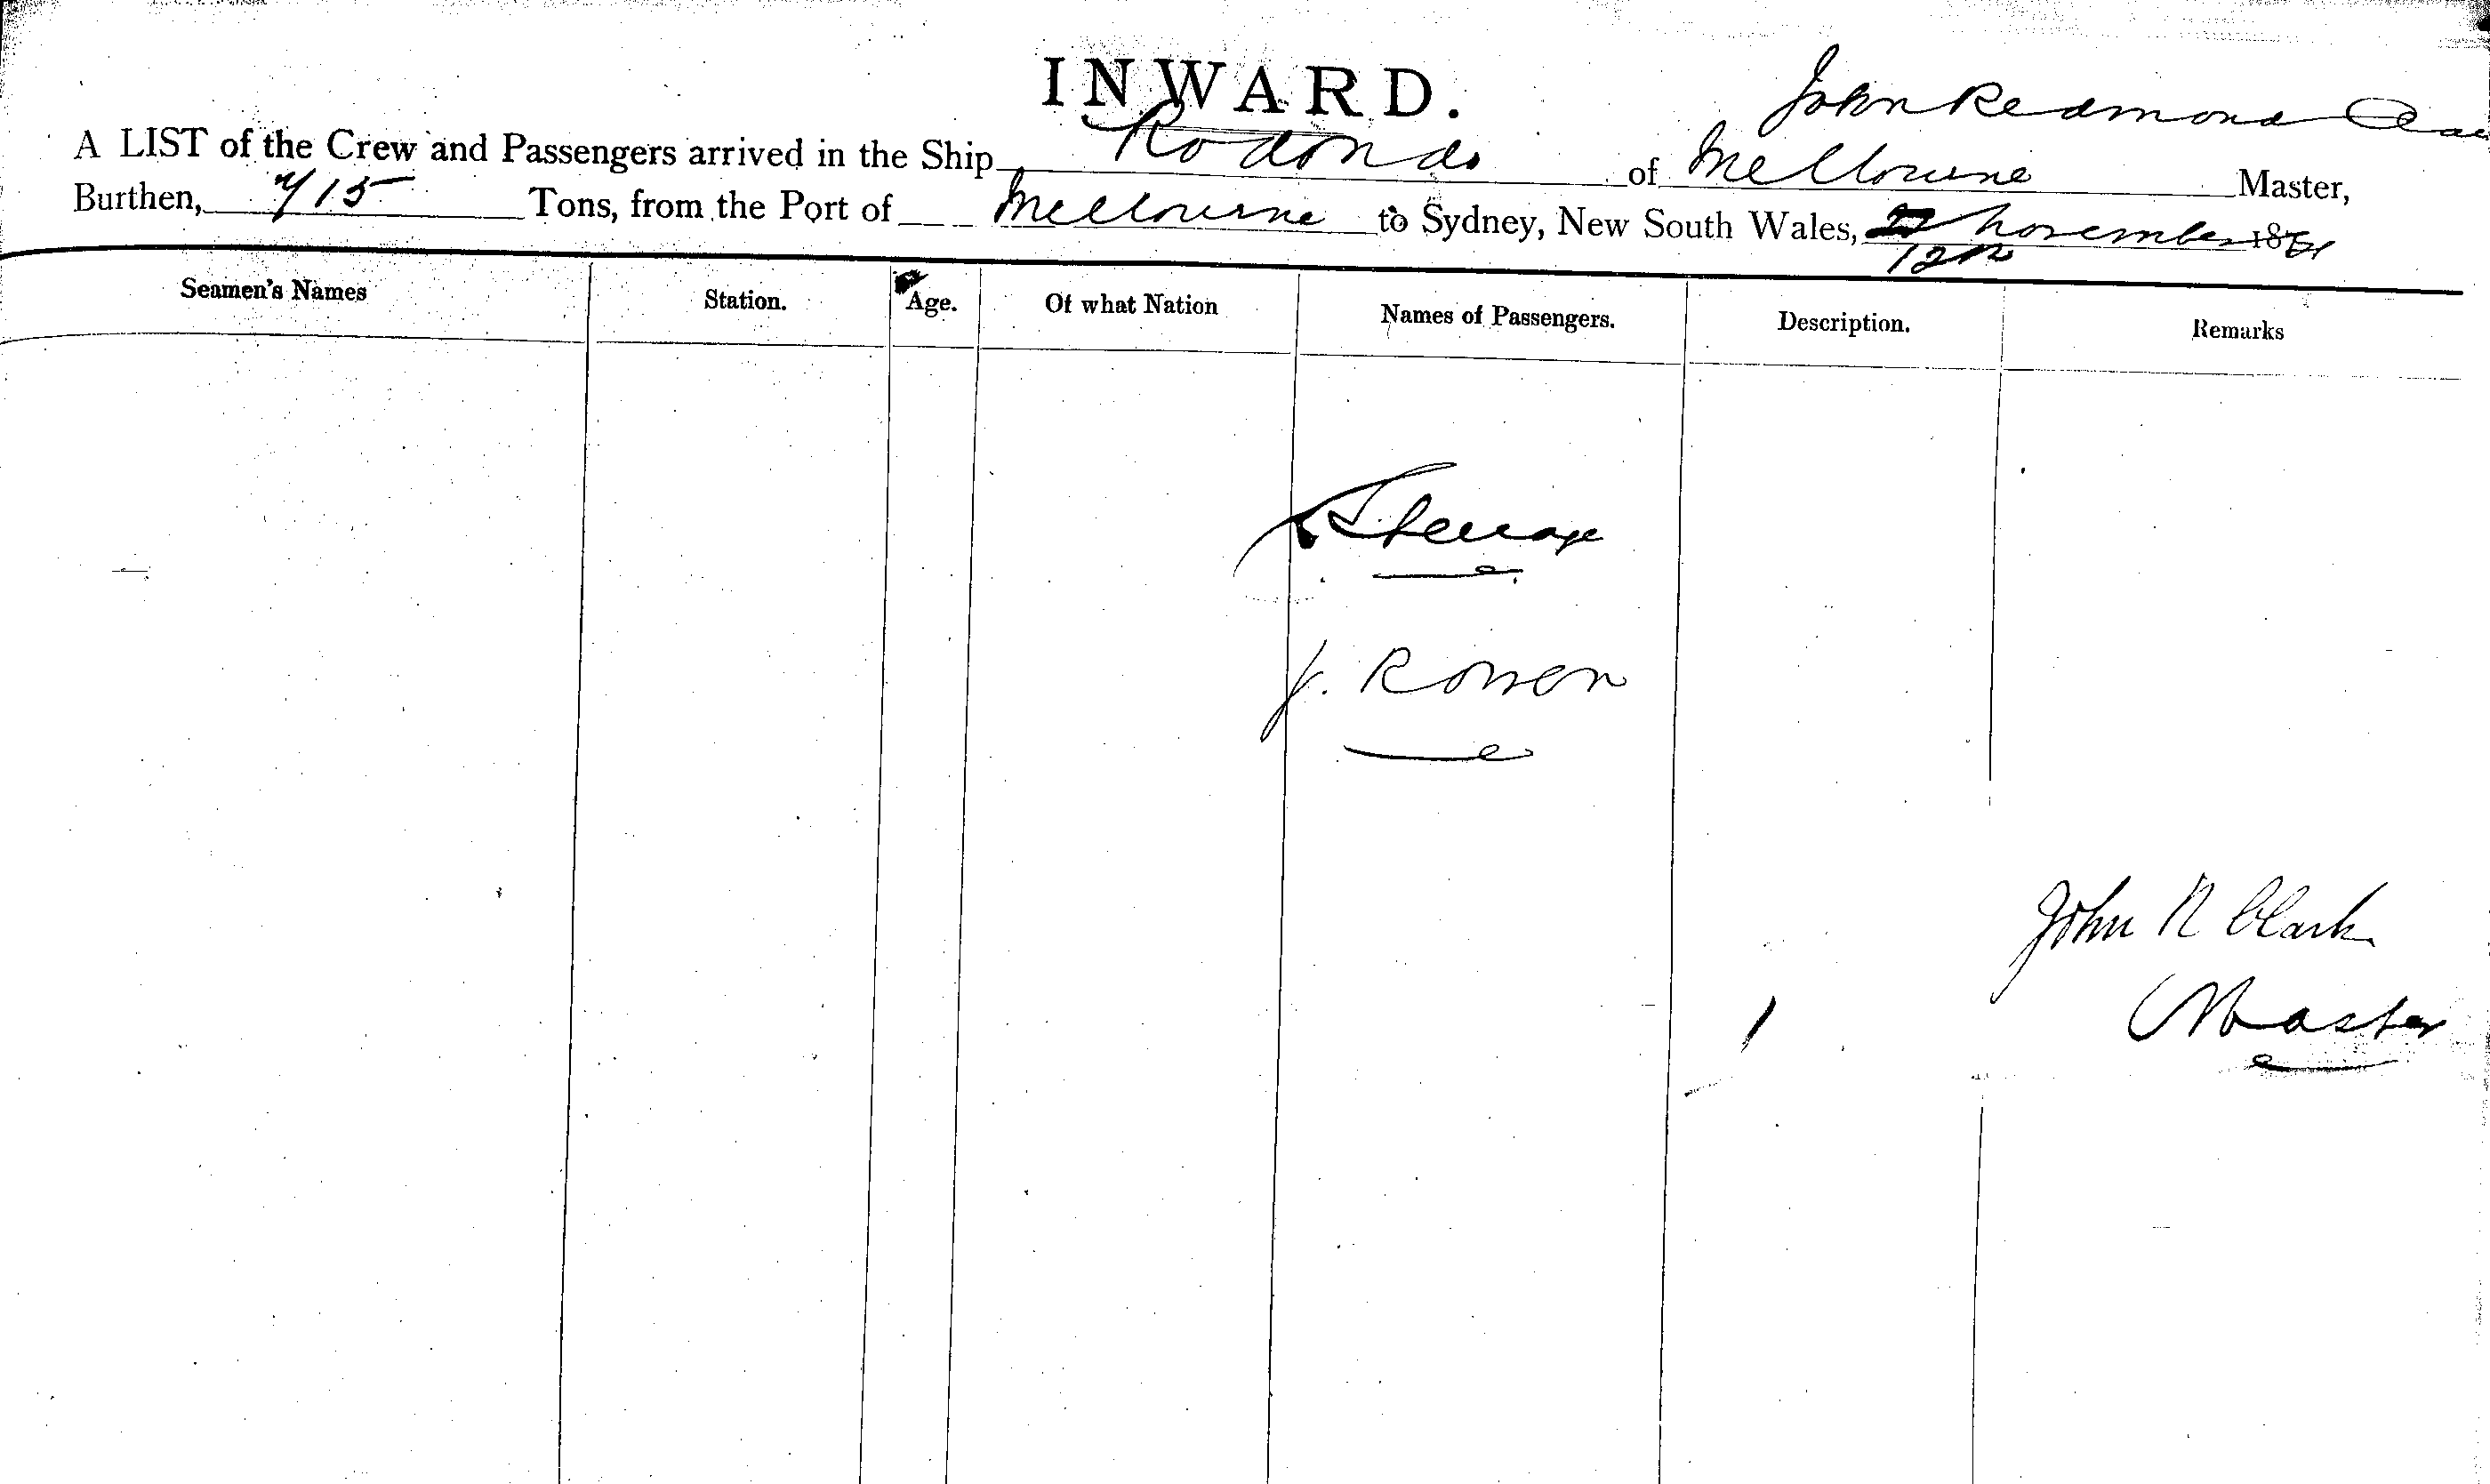 INWARD.
John Redmond
A LIST of the Crew and Passengers arrived in the Ship Rodondo of Melbourne Master,
Burthen, 715 Tons, from the Port of Melbourne to Sydney, New South Wales, November 18
12th
Seamen's Names Station. Age. Of what Nation Names of Passengers. Description. Remarks
Steerage
J. Rowen
John R Clark
Master